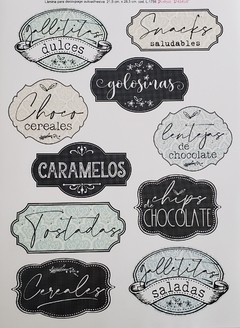 Lámina para decoupage autoadhesiva 21,5 cm x 28,5 cm
Galletitas
dulces
Snacks
saludables
golosinas
Choco
cereales
lentejas
de
chocolate
CARAMELOS
chips
de
CHOCOLATE
Tostadas
Cereales
Galletitas
saladas